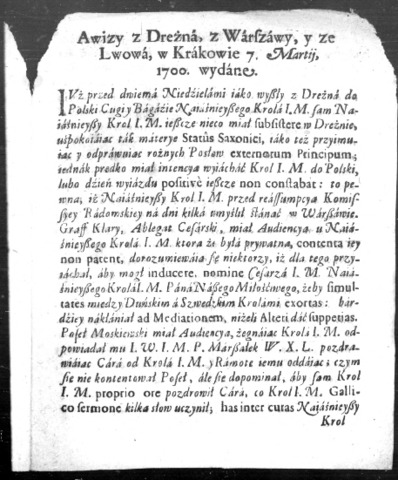 Awizy z Dreżná, z Wárſzáwy, y ze
Lwowá, w Krákowie 7. Martij,
1700. wydáne.
IVż przed dwiemá Niedźielámi iáko wyßły z Dreżná do
Polski Cugi y Bágáźie Naiáśnieyßego Krolá I. M. ſam Na-
iáśnieyßy Krol I. M. ieſzcze nieco miał ſubſiſtere w Dreżnie,
uſpokoiáiąc ták máterye Statûs Saxonici, iáko też przyimu-
iąc y odpráwuiąc rożnych Posłow externorum Principum,
iednák prędko miał intencyą wyiácháć Krol I. M. do Polski,
lubo dźień wyiázdu poſitivè ieſzcze non conſtabat: to pe-
wna, iż Naiáśnieyßy Krol I. M. przed reáſſumpcyą Komiſ-
ſyey Rádomskiey ná dni kilká umyślił ſtánąć w Wárſzáwie.
Graff Klary, Ablegat Ceſárski, miał Audiencyą u Naiá-
śnieyßego Krolá I. M. ktora że byłá prywatna, contenta iey
non patent, dorozumiewáią ſię niektorzy, iż dla tego przy-
iáchał, áby mogł inducere, nomine Ceſárzá I. M. Naiá-
śnieyßego Krolá I. M. Páná Náßego Miłośćiwego, żeby ſimul-
tates miedzy Duńskim á Szwedzkim Krolámi exortas: bár-
dźiey nákłániał ad Mediationem, niżeli Alteri dáć ſuppetias.
Poſeł Moskiewski miał Audiencyą, żegnáiąc Krolá I. M. od-
powiadał mu I. W. I. M. P. Márßałek W. X. L. pozdra-
wiáiąc Cárá od Krolá I. M. y Rámotę iemu oddáiąc: czym
ſię nie kontentował Poſeł, ále ſię dopominał, áby ſam Krol
I. M. proprio ore pozdrowił Cárá, co Krol I. M. Galli-
co ſermone kilka słow uczynił; has inter curas Naiáśnieyßy
Krol